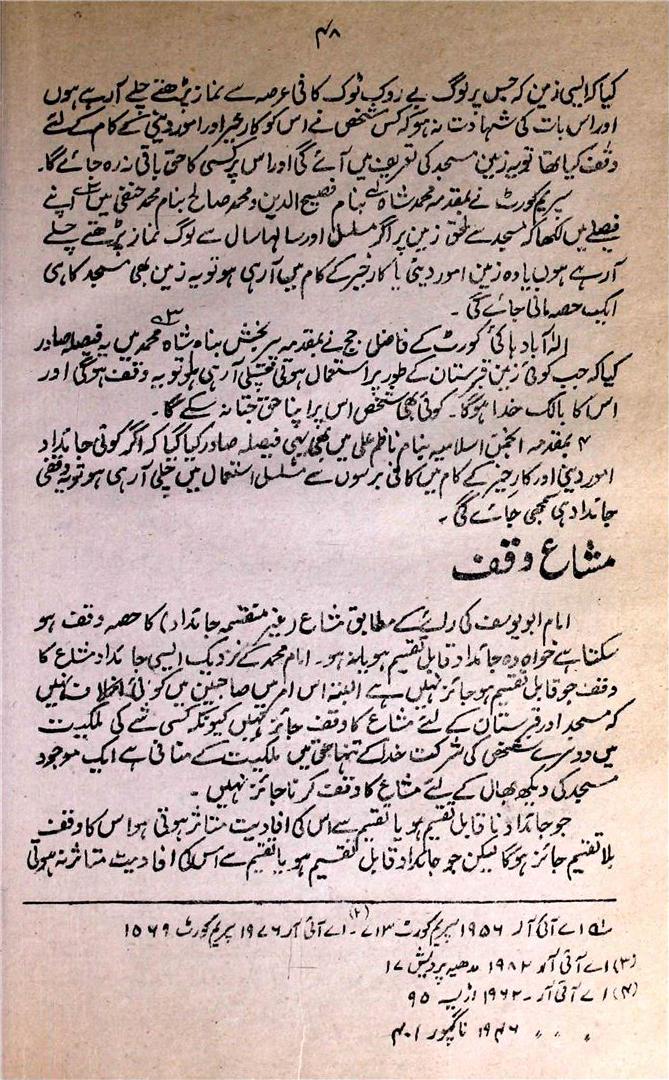 ۴۸
کیا کہ ایسی زمین کہ جس پر لوگ بے روک ٹوک کافی عرصہ سے نماز پڑھتے چلے آرہے ہوں
اور اس بات کی شہادت نہ ہو کہ کس شخص نے اس کو کار خیر اور امور دینی کے کام کے لئے
وقف کیا تھا تو یہ زمین مسجد کی تعریف میں آئے گی اور اس پر کسی کا حق باقی نہ رہ جائے گا۔
سپریم کورٹ نے بمقدمہ محمد شاہ بنام فصیح الدین و محمد صالح بنام محمد حنفی میں اپنے
فیصلے میں لکھا کہ مسجد سے ملحق زمین پر اگر مسلسل اور سالہا سال سے لوگ نماز پڑھتے چلے
آرہے ہوں یا وہ زمین امور دینی یا کار خیر کے کام میں آرہی ہو تو یہ زمین بھی مسجد کا ہی
ایک حصہ مانی جائے گی۔
الہ آباد ہائی کورٹ کے فاضل جج نے بمقدمہ پیر بخش بناہ شاہ محمد میں یہ فیصلہ صادر
کیا کہ جب کوئی زمین قبرستان کے طور پر استعمال ہوتی چلی آرہی ہو تو یہ وقف ہوگی اور
اس کا مالک خدا ہوگا۔ کوئی بھی شخص اس پر اپنا حق جتا نہ سکے گا۔
۴ بمقدمہ انجمن اسلامیہ بنام ناظم علی میں بھی یہی فیصلہ صادر کیا گیا کہ اگر کوئی جائداد
امور دینی اور کار خیر کے کام میں کافی برسوں سے مسلسل استعمال میں چلی آرہی ہو تو یہ وقفی
جائداد ہی سمجھی جائے گی۔
مشاع وقف
امام ابو یوسف کی رائے کے مطابق مشاع (غیر منقسمہ جائداد) کا حصہ وقف ہو
سکتا ہے خواہ وہ جائداد قابل تقسیم ہو یا نہ ہو۔ امام محمد کے نزدیک ایسی جائداد مشاع کا
وقف جو قابل تقسیم ہو جائز نہیں ہے البتہ اس امر میں صاحبین میں کوئی اختلاف نہیں
کہ مسجد اور قبرستان کے لئے مشاع کا وقف جائز نہیں کیونکہ کسی شے کی ملکیت
میں دوسرے شخص کی شرکت خدا کے تنہا حق میں ملکیت کے منافی ہے ایک موجود
مسجد کی دیکھ بھال کے لئے مشاع کا وقف کرنا جائز نہیں۔
جو جائداد نا قابل تقسیم ہو یا تقسیم سے اس کی افادیت متاثر ہوتی ہو اس کا وقف
بلا تقسیم جائز ہوگا لیکن جو جائداد قابل تقسیم ہو یا تقسیم سے اس کی افادیت متاثر نہ ہوتی
اے آئی آر ۱۹۵۶ سپریم کورٹ ۷۱۳ - (۲) اے آئی آر ۱۹۷۶ سپریم کورٹ ۱۵۶۹
(۳) اے آئی آر ۱۹۸۲ مدھیہ پردیش ۱۷
(۴) اے آئی آر - ۱۹۶۲ اڑیسہ ۹۵
〃 〃 〃 ۱۹۴۶ ناگپور ۴۰۱